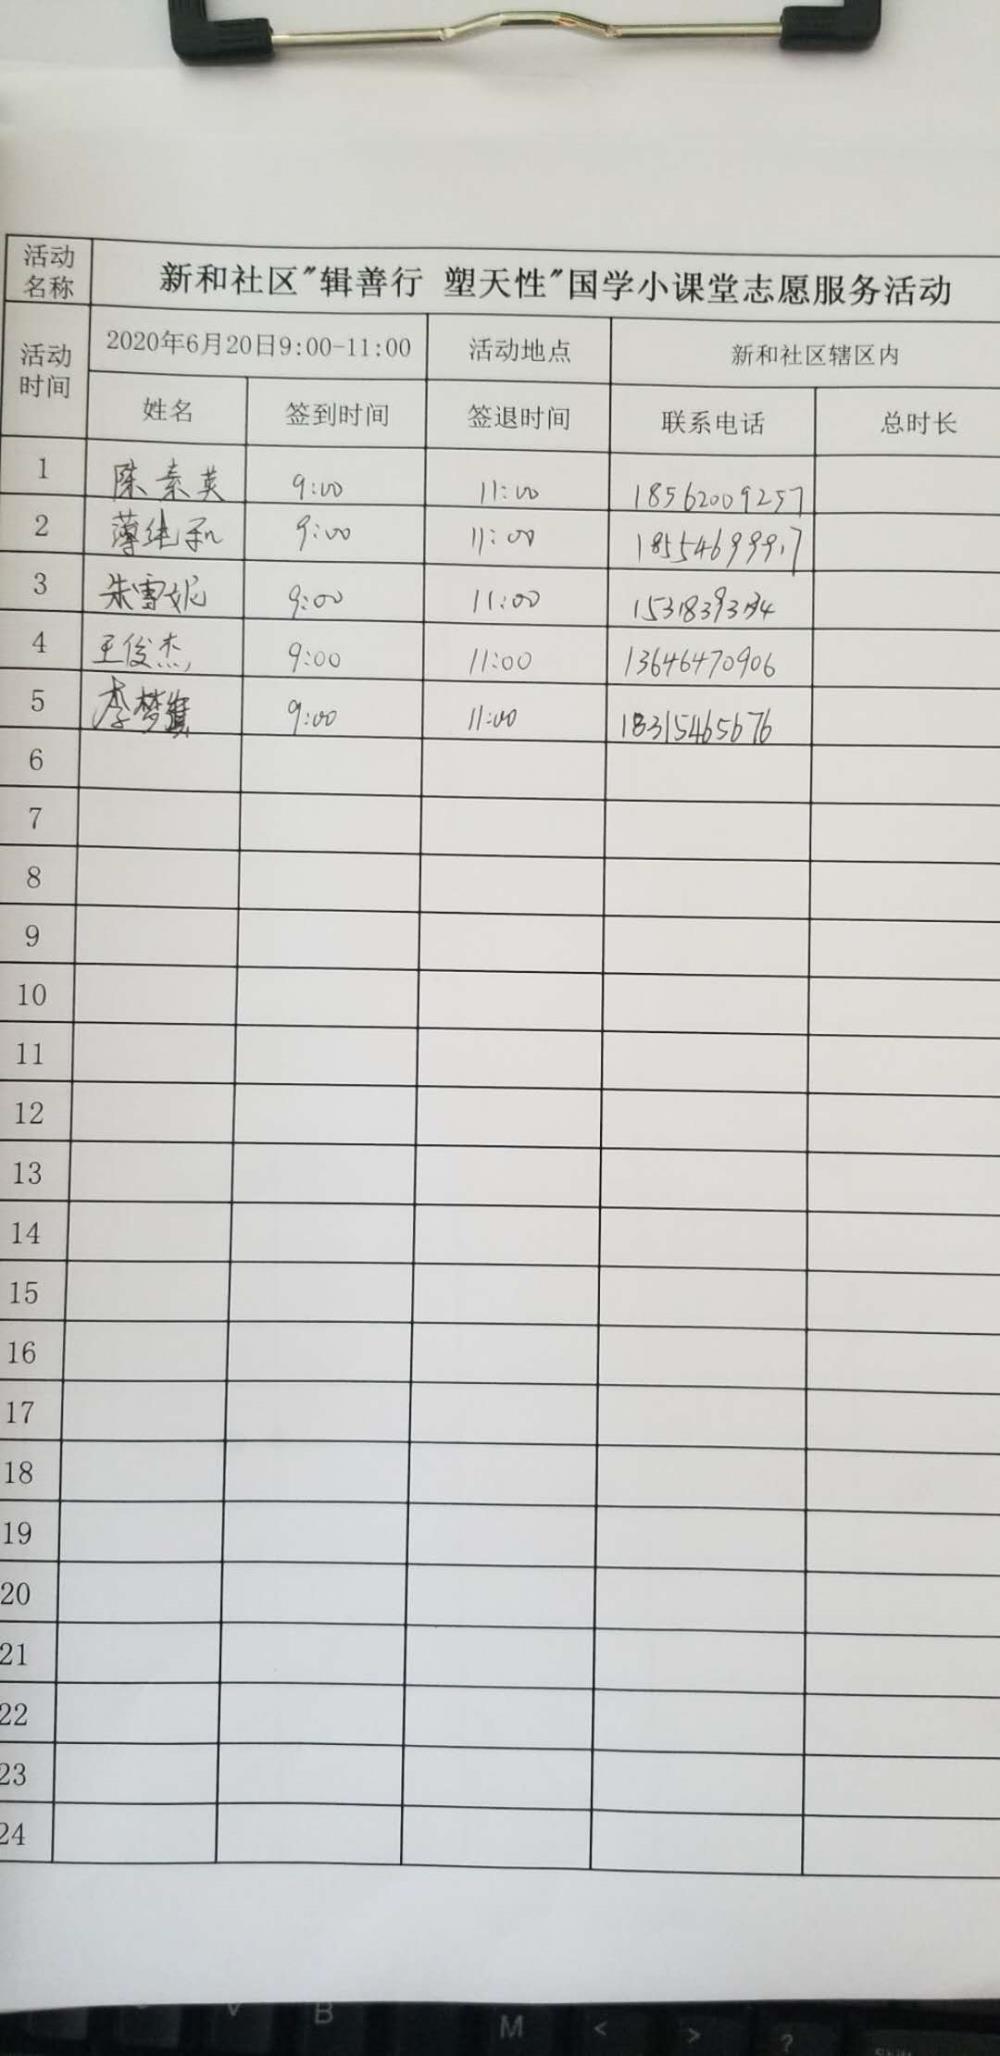 活动名称 新和社区"辑善行 塑天性"国学小课堂志愿服务活动
活动时间 2020年6月20日9:00-11:00 活动地点 新和社区辖区内
姓名 签到时间 签退时间 联系电话 总时长
1 陈素英 9:00 11:00 18562009257
2 薄继和 9:00 11:00
3 朱雪妮 9:00 11:00
4 王俊杰 9:00 11:00 13646470906
5 李梦 9:00 11:00 18315465676
6
7
8
9
10
11
12
13
14
15
16
17
18
19
20
21
22
23
24
V B M < > ?